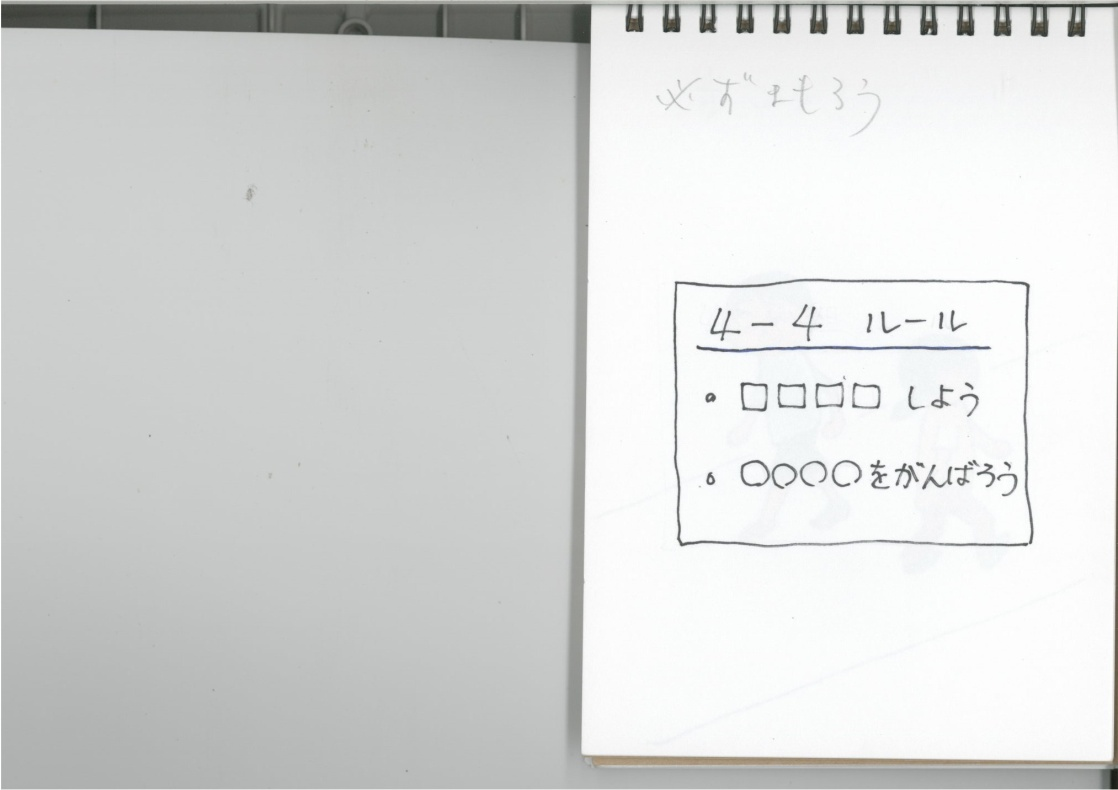 必ずまもろう
4-4 ルール
• □□□□ しよう
• ○○○○をがんばろう